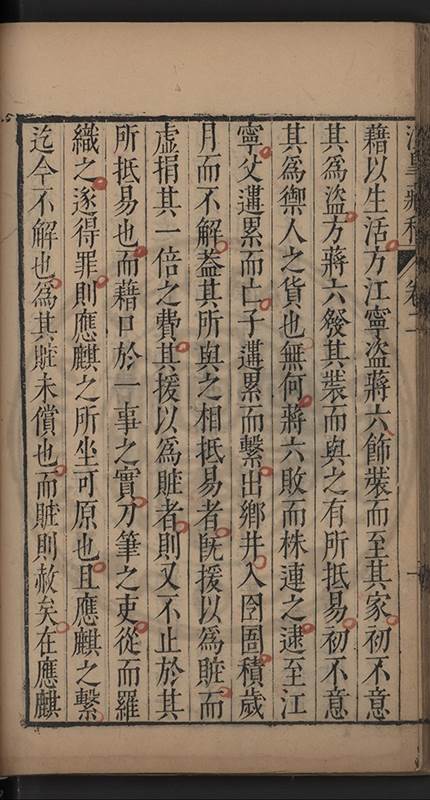 藉以生活方江寧盜蔣六飾裝而至其家初不意
其為盜方蔣六發其裝而與之有所抵易初不意
其為禦人之貨也無何蔣六敗而株連之逮至江
寧父遘累而亡子遘累而繫出鄉井入囹圄積歲
月而不解蓋其所與之相抵易者旣援以為賍而
虛捐其一倍之費其援以為賍者則又不止於其
所抵易也而藉口於一事之實刀筆之吏從而羅
織之遂得罪則應麒之所坐可原也且應麒之繫
迄今不解也為其賍未償也而賍則赦矣在應麒